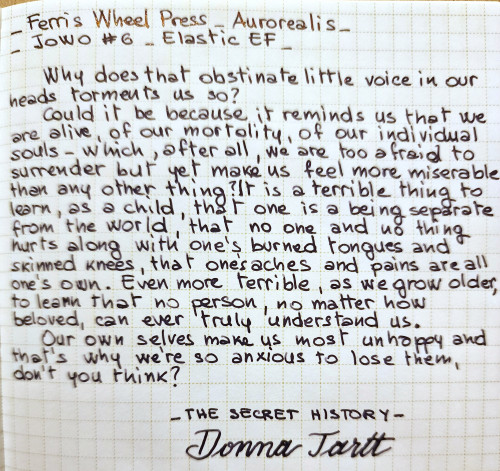 _ Ferris Wheel Press _ Aurorealis _
_ JoWo #6 _ Elastic EF _
Why does that obstinate little voice in our
heads torments us so?
Could it be because it reminds us that we
are alive, of our mortality, of our individual
souls - which, after all, we are too afraid to
surrender but yet make us feel more miserable
than any other thing? It is a terrible thing to
learn, as a child, that one is a being separate
from the world, that no one and no thing
hurts along with one's burned tongues and
skinned knees, that one's aches and pains are all
one's own. Even more terrible, as we grow older,
to learn that no person, no matter how
beloved, can ever truly understand us.
Our own selves make us most unhappy and
that's why we're so anxious to lose them,
don't you think?
_ THE SECRET HISTORY -
Donna Tartt